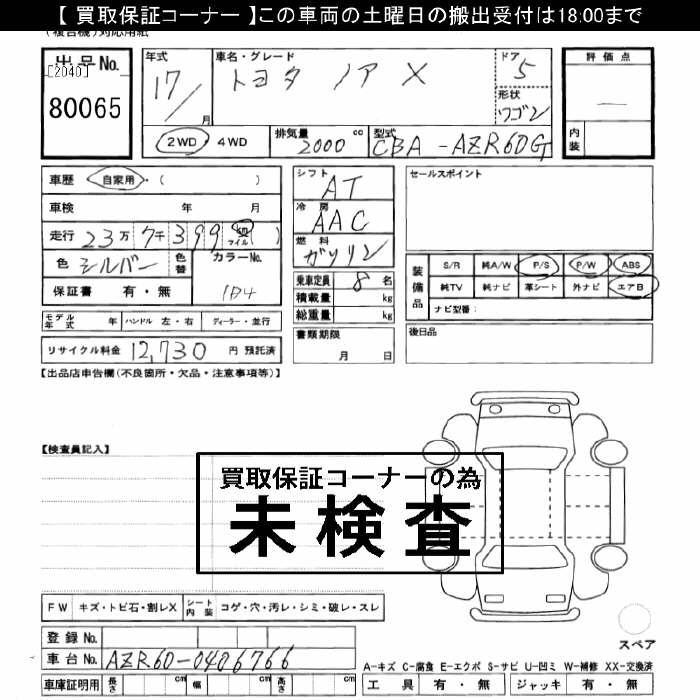 【 買取保証コーナー 】この車両の土曜日の搬出受付は18:00まで
(複合機)対応用紙
出品No.
[2040]
80065
年式
17/
月
車名・グレード
トヨタ ノア X
ドア
5
形状
ワゴン
2WD・4WD
排気量
2000
cc
型式
CBA-AZR60G
評価点
―
内装
車歴 自家用・( )
車検 年 月
走行 23万 7千 399 km マイル ( )
色 シルバー
色替
カラーNo.
1D4
保証書 有・無
モデル年式 年
ハンドル 左・右
ディーラー・並行
リサイクル料金 12,730 円 預託済
シフト
AT
冷房
AAC
燃料
ガソリン
乗車定員 8 名
積載量 kg
総重量 kg
書類期限
月 日
セールスポイント
装備品
S/R 純A/W P/S P/W ABS
純TV 純ナビ 革シート 外ナビ エアB
ナビ型番:
後日品
【出品店申告欄(不良箇所・欠品・注意事項等)】
【検査員記入】
買取保証コーナーの為
未検査
FW キズ・トビ石・割レX
シート内装 コゲ・穴・汚レ・シミ・破レ・スレ
登録No.
車台No. AZR60-0406766
車庫証明用 長さ cm 幅 cm 高さ cm
スペア
A-キズ C-腐食 E-エクボ S-サビ U-凹ミ W-補修 XX-交換済
工具 有・無 ジャッキ 有・無